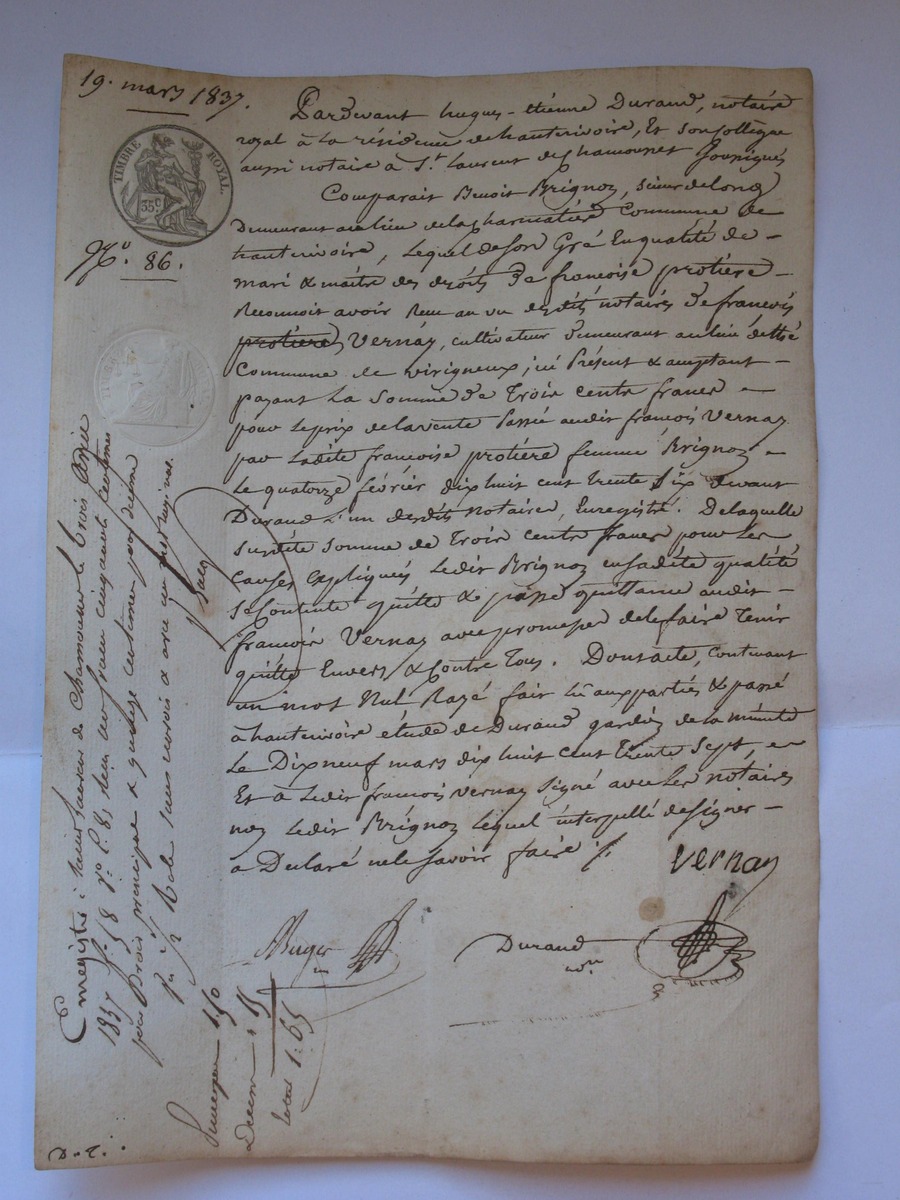 19. mars 1837.
TIMBRE ROYAL.
35 c.
N.° 86.
Pardevant hugues-étienne Durand, notaire
royal à la résidence de hauterivoire, Et son Collègue
aussi notaire à S.t Laurent de Chamousset soussignés
Comparait Benoit Brignoz,
Demeurant au lieu de la Commune de
hauterivoire, Lequel de son Gré En qualité de -
mari & maitre des droits De francoise protière -
Reconnoit avoir Reçu au vu desdits notaires de francois
protière Vernay, cultivateur Demeurant au lieu
Commune de virigneux; ici Présent & acceptant -
payant La Somme De Trois cents francs -
pour Le prix de la vente Passée audit françois Vernay
par Ladite francoise protière femme Brignoz -
Le quatorze février dix huit cent trente Six devant
Durand L'un desdits Notaires, Enregistré. De laquelle
susdite somme de Trois cents francs pour les
causes Expliquées Ledit Brignoz en sadite qualité
se Contente quitte & passe quittance audit -
francois Vernay avec promesse de le faire Tenir
quitte Envers & Contre Tous. Dont acte, contenant
un mot Nul Rayé fait lu aux parties & passé
à hauterivoire étude de Durand gardés de la minute
Le Dix neuf mars dix huit cent trente sept,
Et à Ledit francois Vernay Signé avec Les notaires
non Ledit Brignoz Lequel interpellé de signer -
a Déclaré ne le savoir faire ./.
Vernay
Durand
n.re
Enregistré à Saint Laurent de Chamousset le trois
1837 f.o 18 r.o C. 8, reçu un franc cinquante centimes
pour Droit principal & quinze centimes pour dixième
1.50
15
total 1:65
D. E.